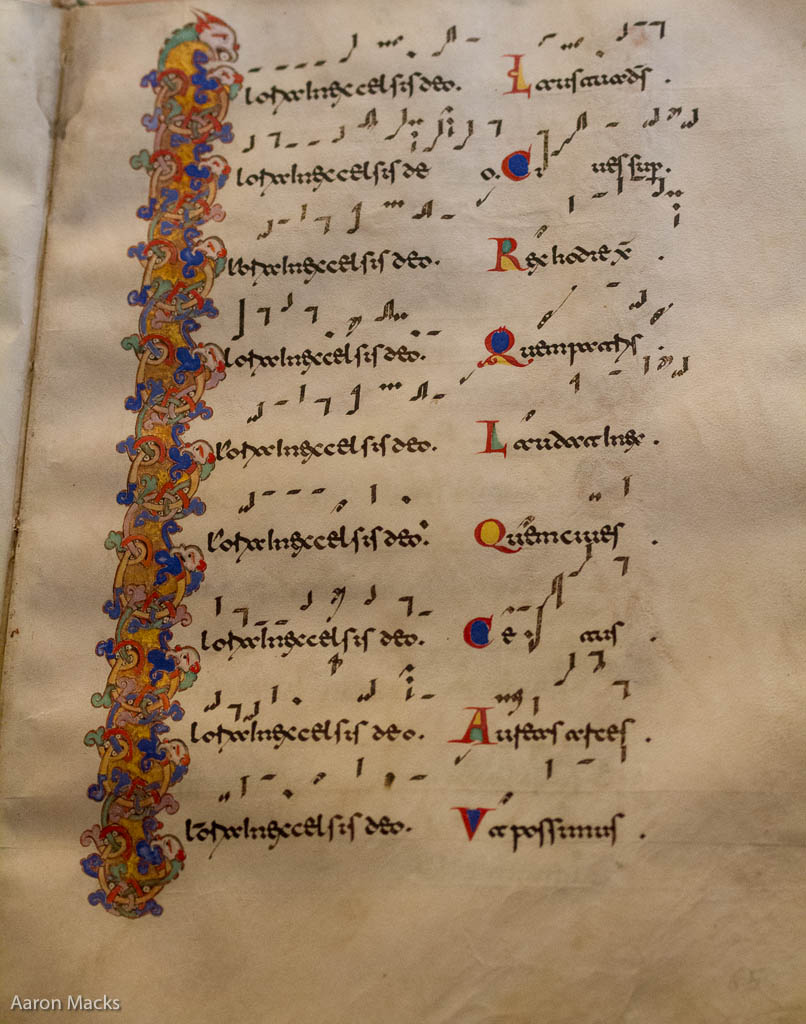 loria Inexcelsis deo. Laus tua ds̄ .
loria Inexcelsis de o. Ci ues sup.
loria Inexcelsis deo. Rex hodie x̄ .
loria Inexcelsis deo. Quem patris .
loria Inexcelsis deo. Laudat Inex .
loria Inexcelsis deo. Quem ciues .
loria Inexcelsis deo. Ce tus .
loria Inexcelsis deo.
loria Inexcelsis deo. Vt possimus .
65
Aaron Macks